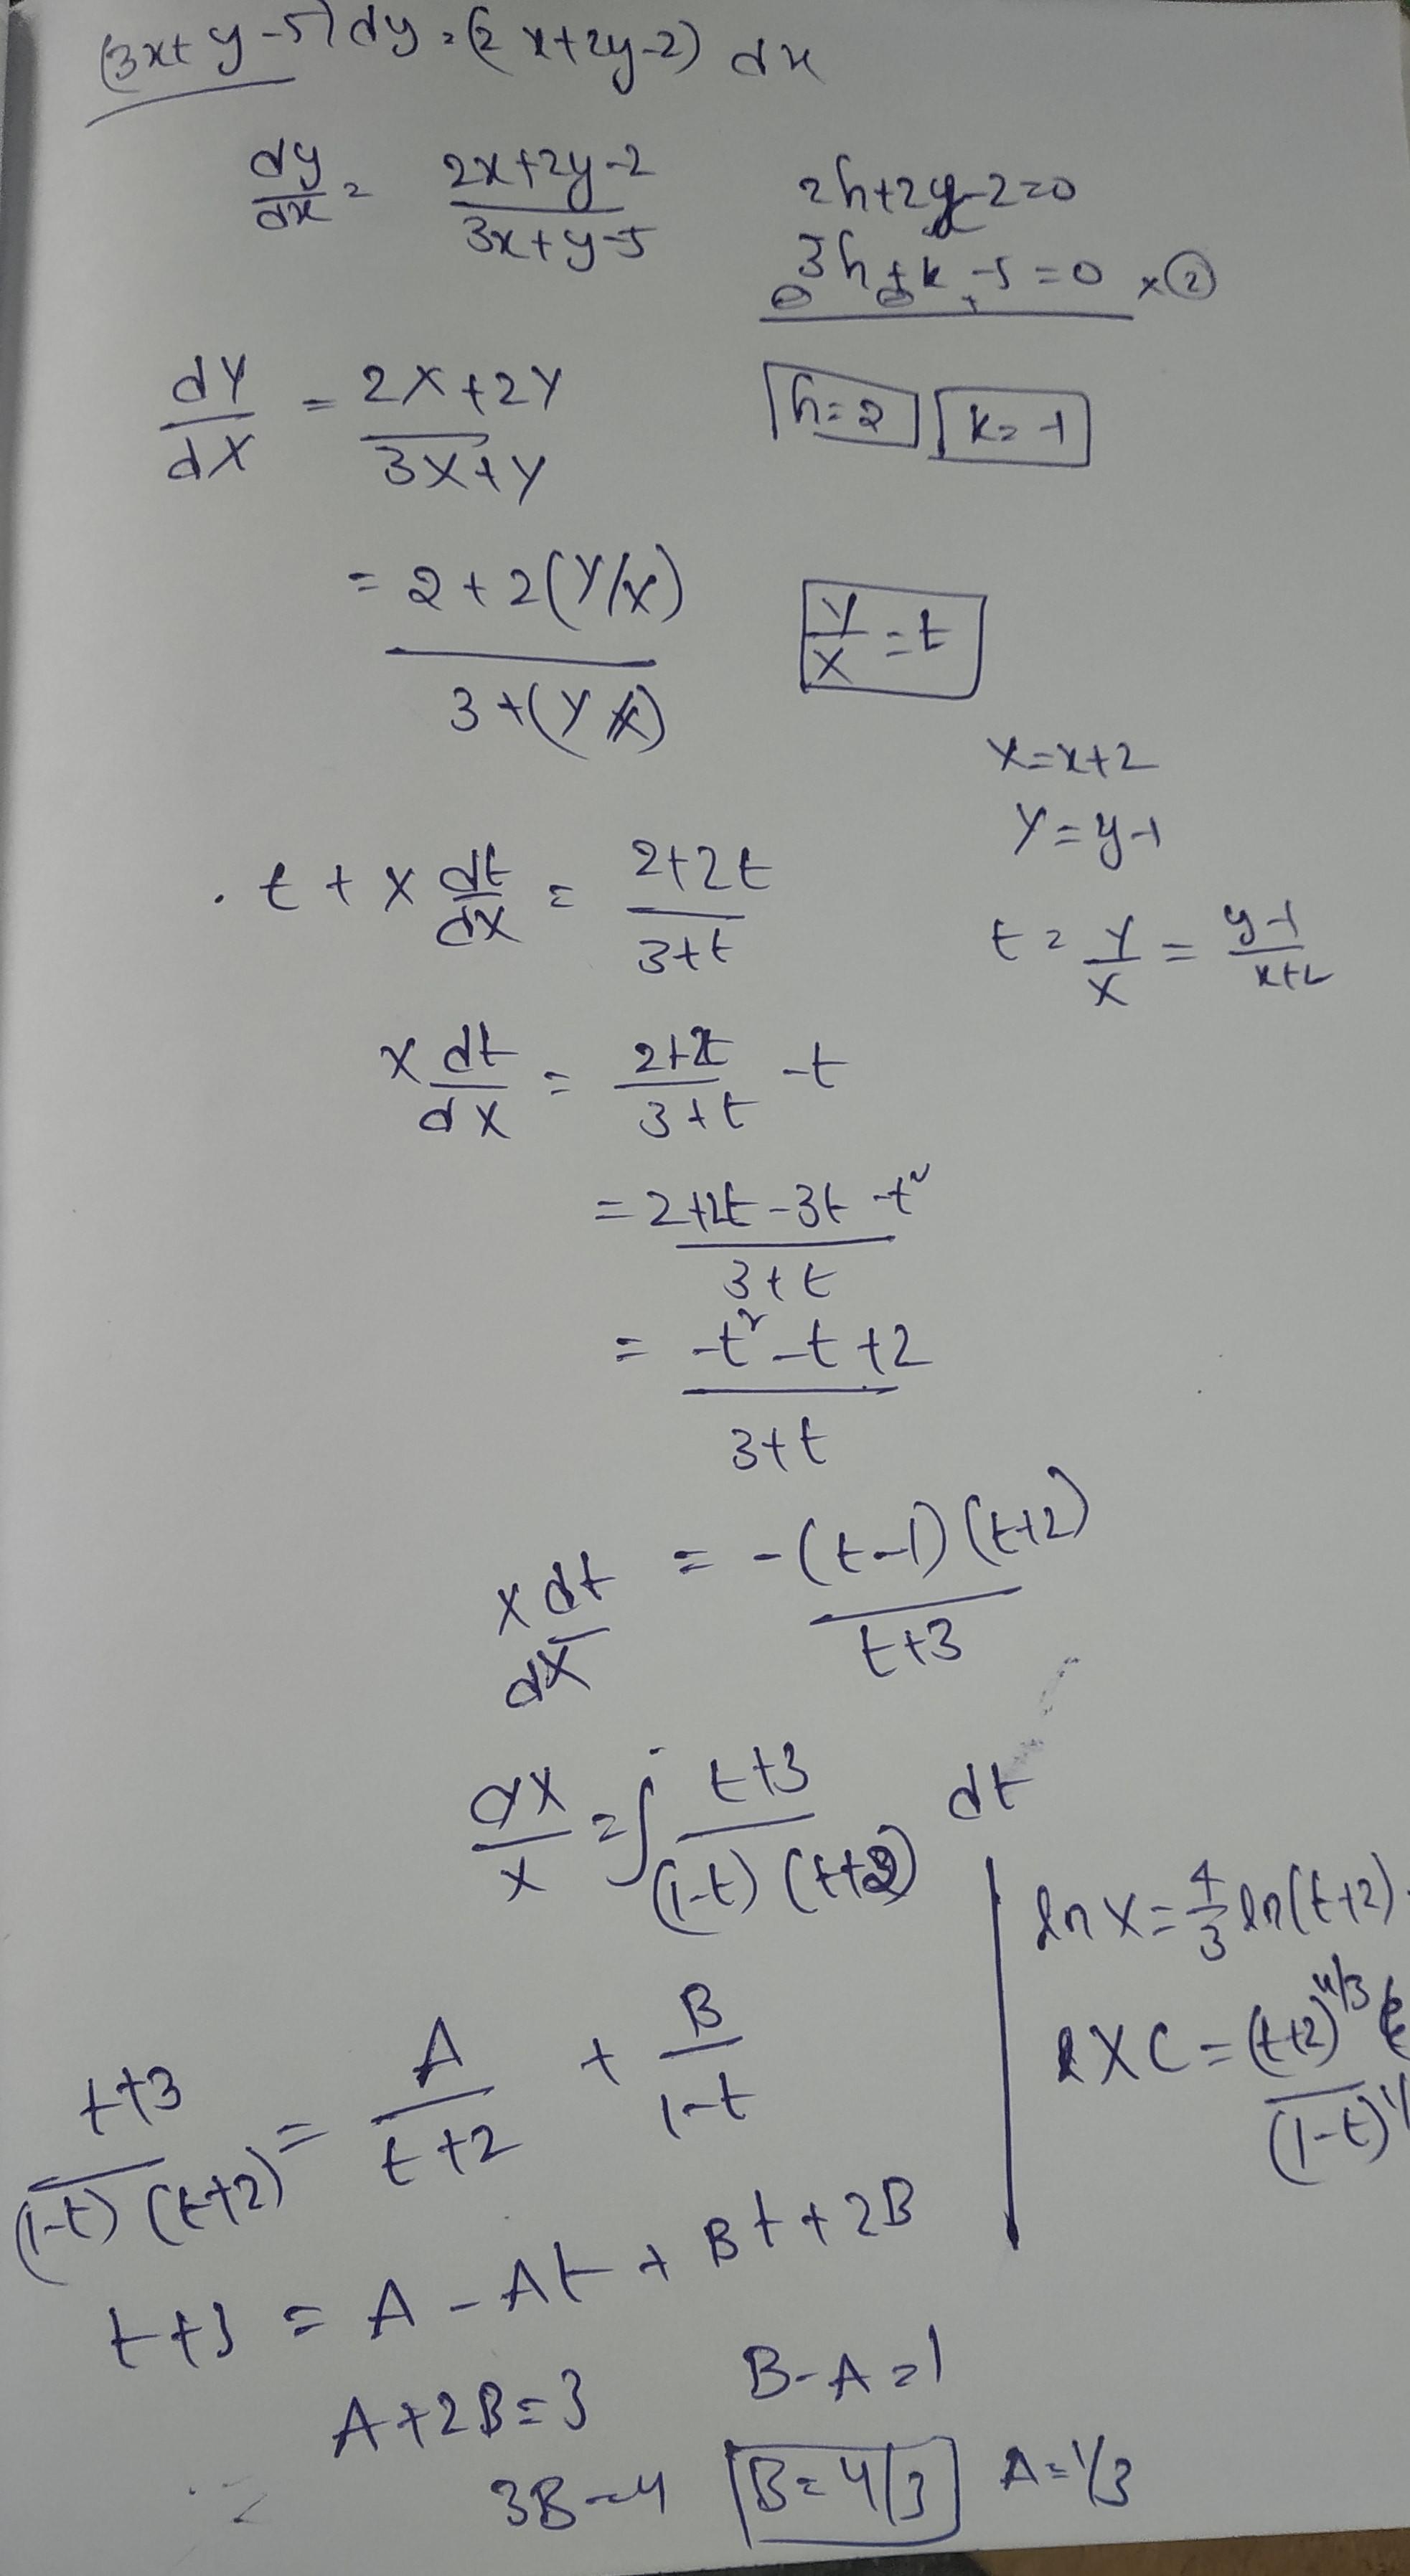 (3x+y-5)dy=(2x+2y-2) dx
dy/dx = (2x+2y-2)/(3x+y-5)
2h+2y-2=0
3h+k-5=0 ×②
dY/dX = (2X+2Y)/(3X+Y)
h=2 k=-1
= (2+2(Y/X))/(3+(Y/X))
Y/X=t
X=x+2
Y=y-1
t+X dt/dX = (2+2t)/(3+t)
t=Y/X=(y-1)/(x+2)
X dt/dX = (2+2t)/(3+t) -t
= (2+2t-3t-t²)/(3+t)
= (-t²-t+2)/(3+t)
X dt/dX = -(t-1)(t+2)/(t+3)
dX/X = ∫ (t+3)/((1-t)(t+2)) dt
ln X = 4/3 ln(t+2)
XC = (t+2)^4/3/(1-t)
(t+3)/((1-t)(t+2)) = A/(t+2) + B/(1-t)
t+3 = A-At+Bt+2B
A+2B=3 B-A=1
3B=4 B=4/3 A=1/3